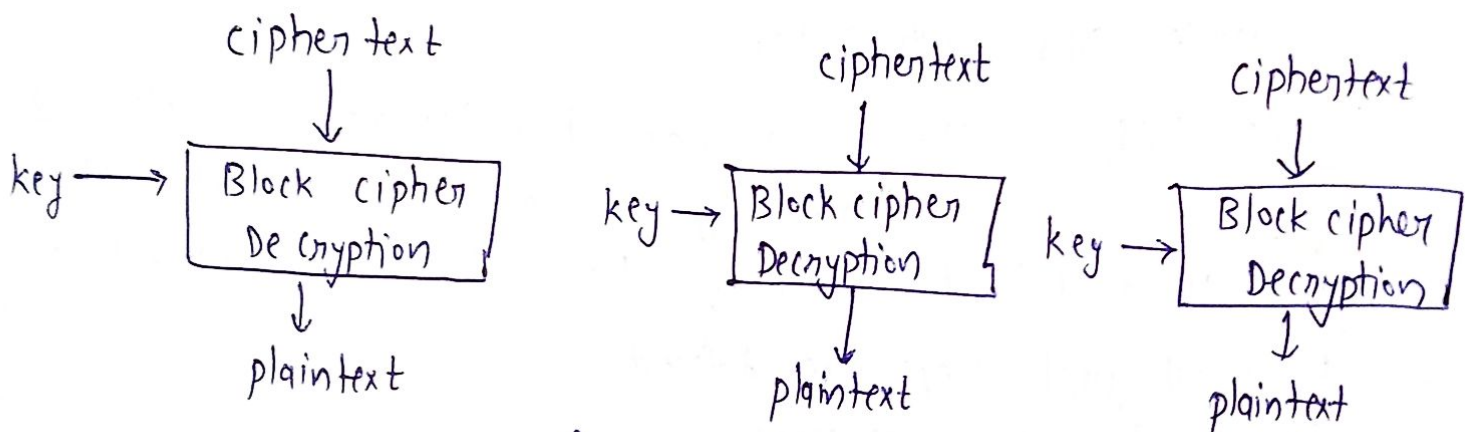 cipher text
key
Block cipher
Decryption
plaintext
ciphertext
key
Block cipher
Decryption
plaintext
ciphertext
key
Block cipher
Decryption
plaintext